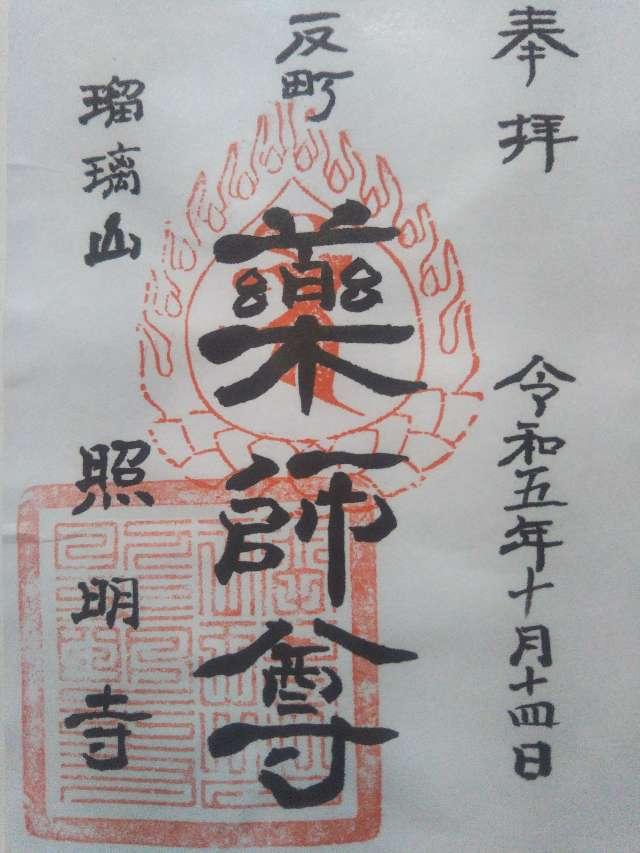 奉拝
令和五年十月十四日
反町
藥師尊
瑠璃山
照明寺